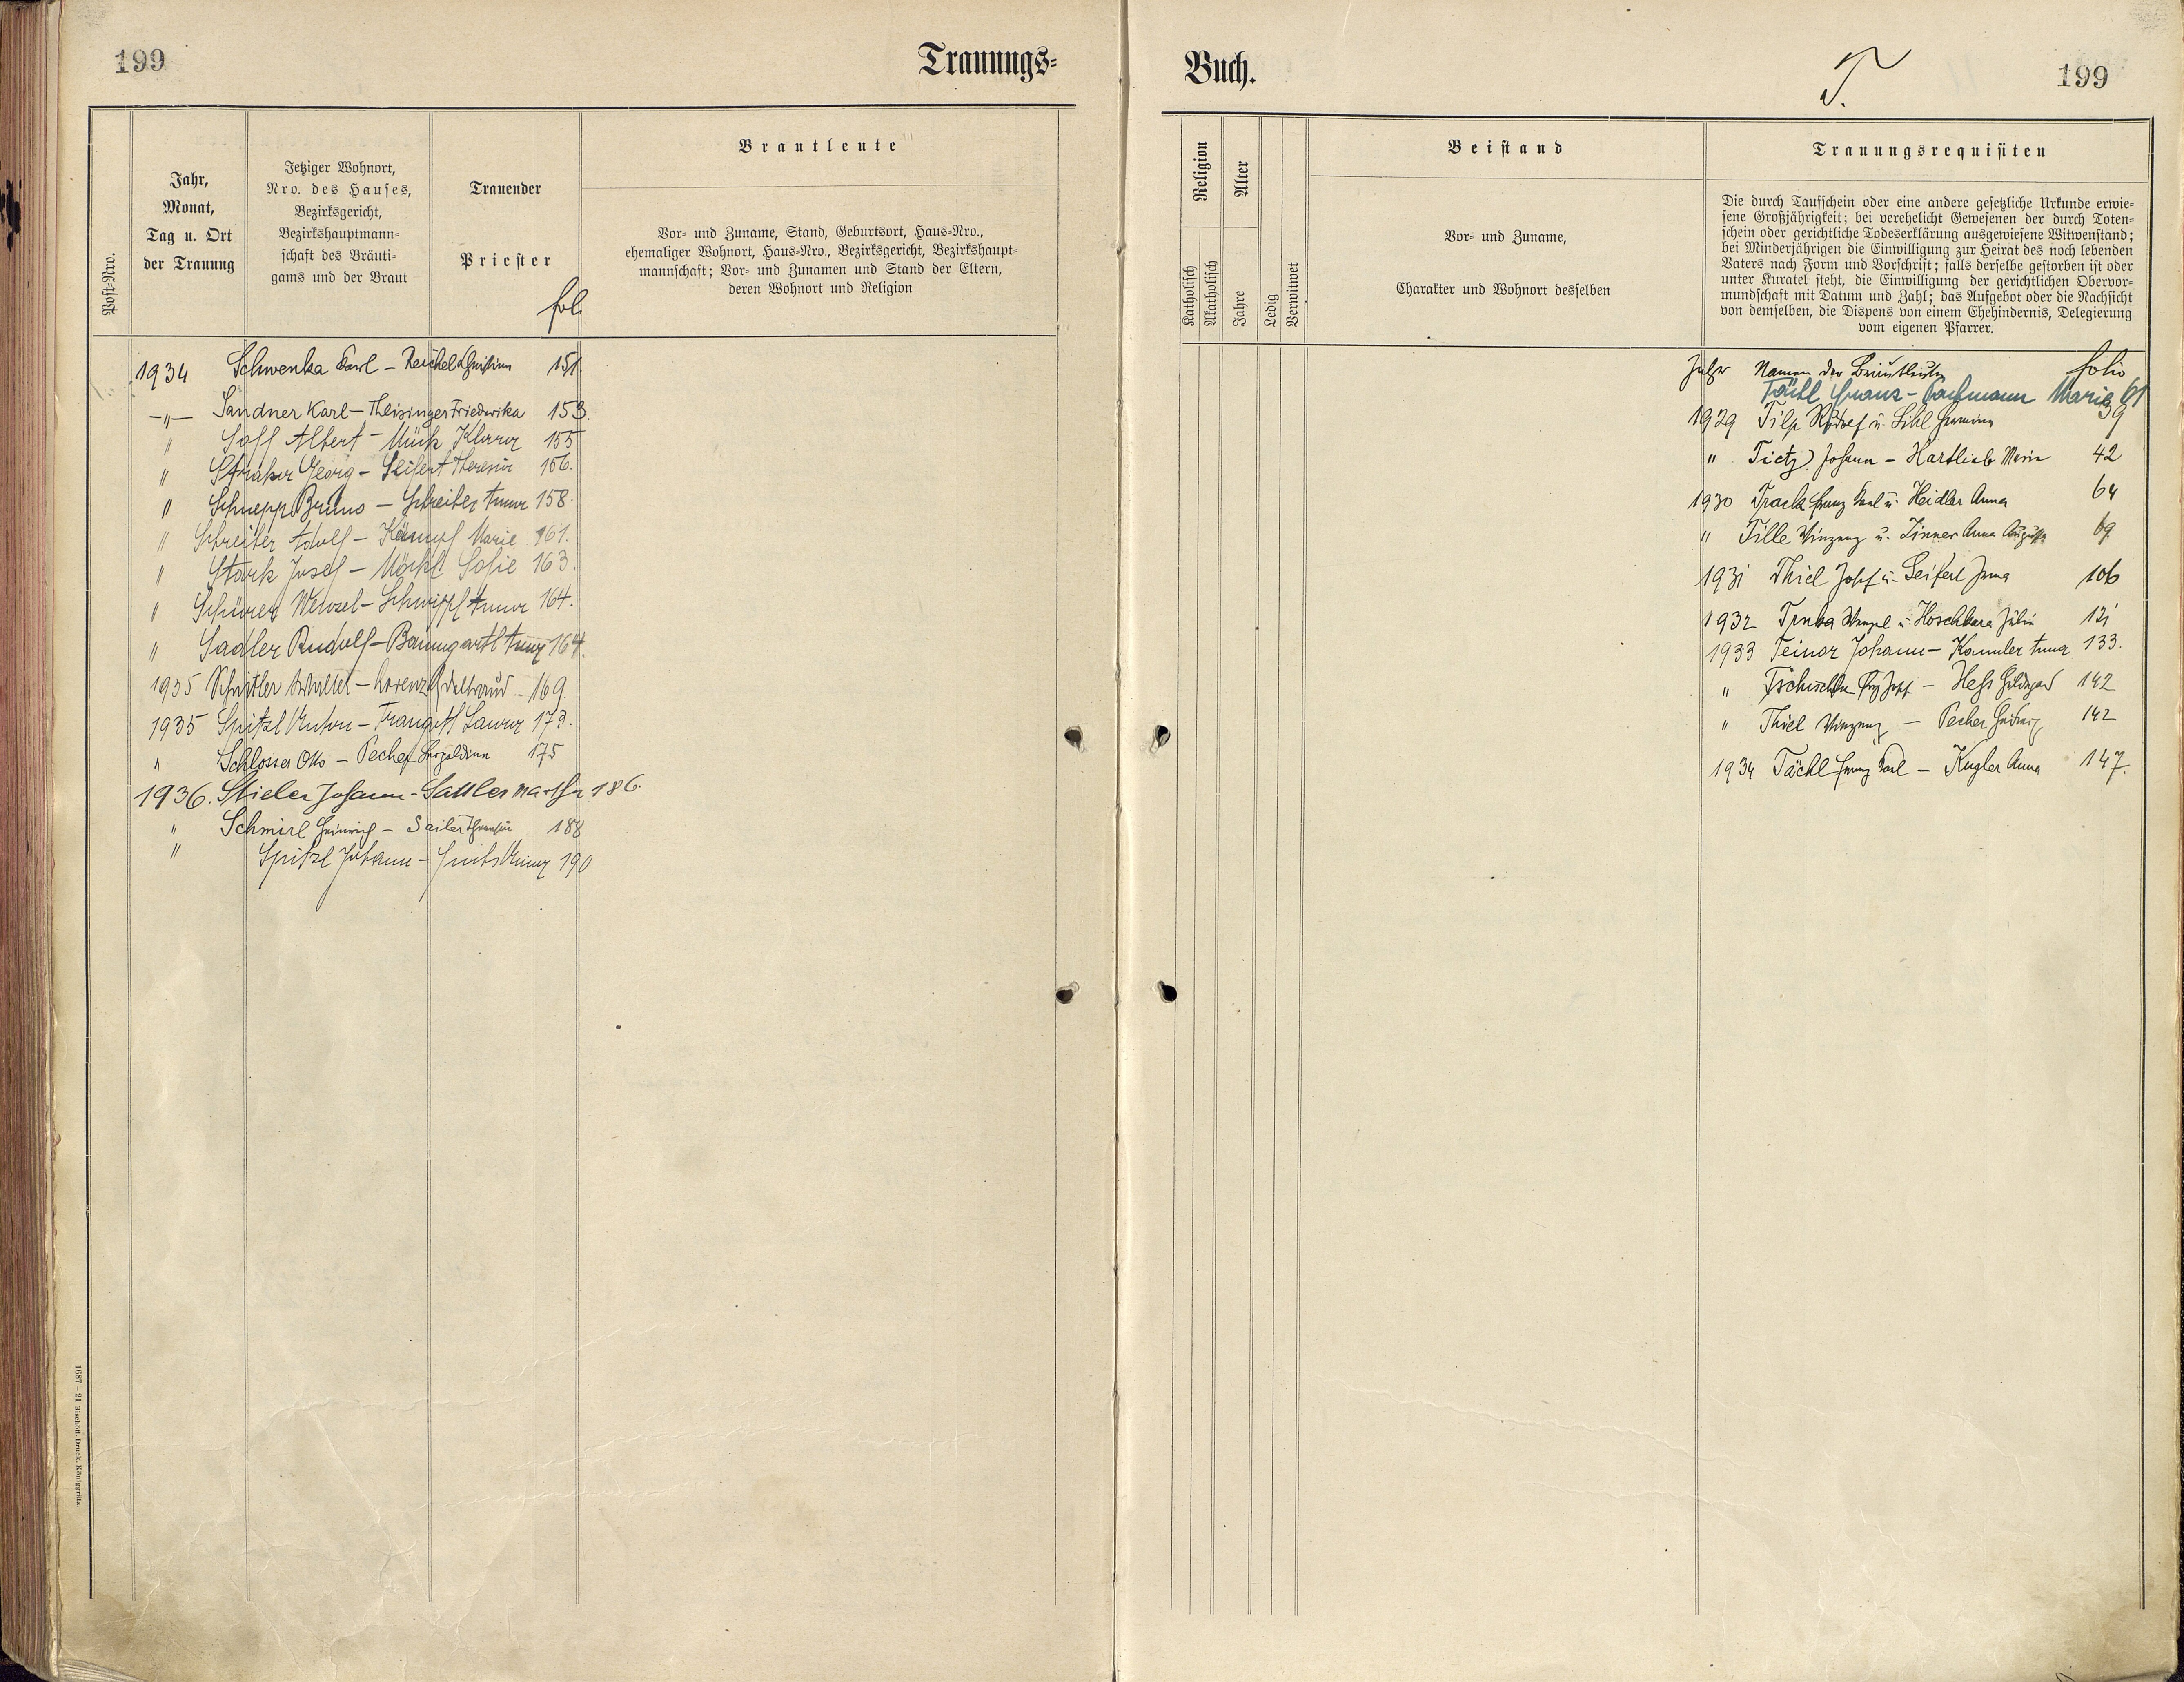 199
Trauungs=
Post=Nro.
Jahr,
Monat,
Tag u. Ort
der Trauung
Jetziger Wohnort,
Nro. des Hauses,
Bezirksgericht,
Bezirkshauptmann=
schaft des Bräuti=
gams und der Braut
Trauender
Priester
fol.
Brautleute
Vor= und Zuname, Stand, Geburtsort, Haus=Nro.,
ehemaliger Wohnort, Haus=Nro., Bezirksgericht, Bezirkshaupt=
mannschaft; Vor= und Zunamen und Stand der Eltern,
deren Wohnort und Religion
1934 Schwenka Karl – Reichel Christine 151.
–„– Sandner Karl – Theisinger Friederika 153.
" Soff Albert – Mück Klara 155
" Straker Georg – Seifert Theresia 156.
" Schnepp Bruno – Schreiber Anna 158.
" Schreiber Adolf – Kämpf Marie 161.
" Stark Josef – Möckl Sofie 163.
" Schürer Wenzel – Anna 164.
" Sadler Rudolf – Baumgartl Anna 164.
1935 Walter – Lorenz 169.
1935 Spitzl Anton – Laura 173.
" Schlosser Otto – Pecher Leopoldine 175
1936. Stieler Johann – Sattler Martha 186.
" Schmirl Heinrich – Sailer Theresia 188
" Spitzl Johann – 190
1687 – 21 Bischöfl. Druck. Königgrätz.
Buch.
T.
199
Religion
Katholisch
Akatholisch
Alter
Jahre
Ledig
Verwitwet
Beistand
Vor= und Zuname,
Charakter und Wohnort desselben
Trauungsrequisiten
Die durch Taufschein oder eine andere gesetzliche Urkunde erwie=
sene Großjährigkeit; bei verehelicht Gewesenen der durch Toten=
schein oder gerichtliche Todeserklärung ausgewiesene Witwenstand;
bei Minderjährigen die Einwilligung zur Heirat des noch lebenden
Vaters nach Form und Vorschrift; falls derselbe gestorben ist oder
unter Kuratel steht, die Einwilligung der gerichtlichen Obervor=
mundschaft mit Datum und Zahl; das Aufgebot oder die Nachsicht
von demselben, die Dispens von einem Ehehindernis, Delegierung
vom eigenen Pfarrer.
Jahr Namen der Brautleute folio
Franz – Marie 61
1929 Tilp Rudolf u. Hermine 39
" Tietz Johann – Hartlieb Maria 42
1930 Track Franz Karl u. Heidler Anna 64
" Tille Vinzenz u. Zinner Anna Augusta 69
1931 Thiel Josef u. Seifert Irma 106
1932 Trnka Wenzel u. Hoschkara Julie 121
1933 Teinor Johann – Kannler Anna 133.
" Josef – Heß Hildegard 142
" Thiel Vinzenz – Pecher Hedwig 142
1934 Tächl Franz Karl – Kugler Anna 147.